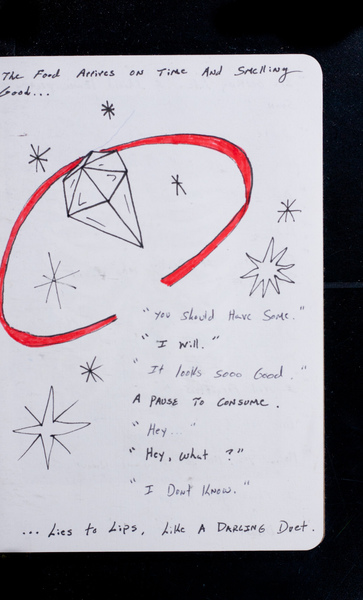 The Food Arrives on Time And Smelling
Good...
"You should Have Some."
"I Will."
"It looks sooo Good."
A Pause To Consume.
"Hey..."
"Hey, what?"
"I Dont Know."
... Lies to Lips, Like A Darling Duet.